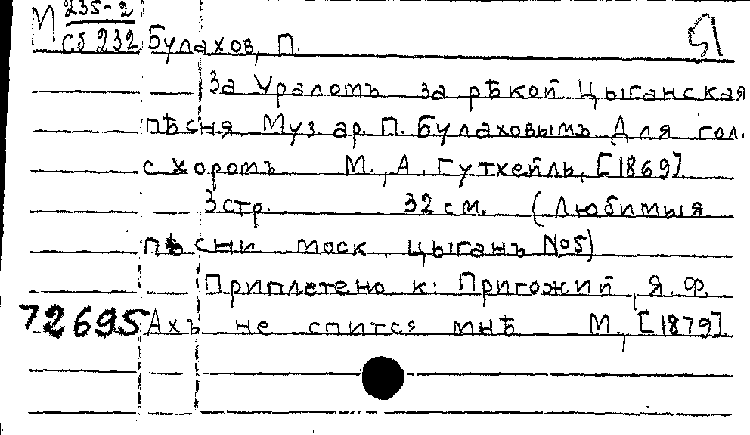 М 235-2
Сб 232 Булахов, П. Я
За Ураломъ за рѣкой Цыганская
пѣсня Муз ар. П. Булаховымъ Для гол.
с хоромъ М., А. Гутхейль, [1869]
3 стр. 32 см. (Любимыя
пѣсни моск. цыганъ №5)
Приплетено к: Пригожий, Я. Ф.
72695 Ахъ не спится мнѣ М., [1879]